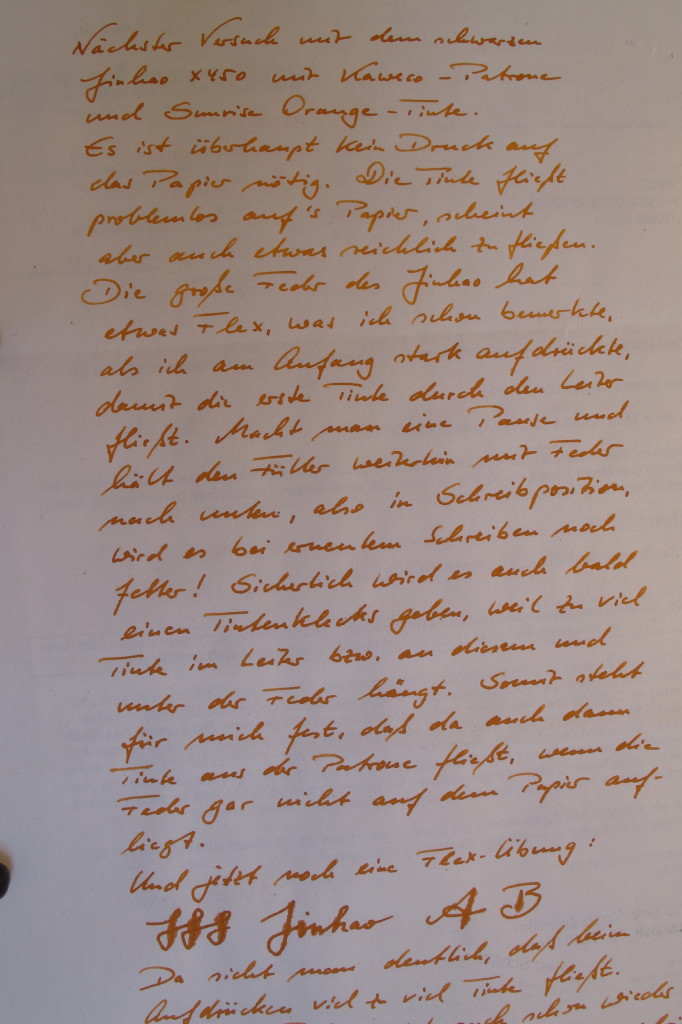 Nächster Versuch mit dem schwarzen
Jinhao X450 mit Kaweco-Patrone
und Sunrise Orange-Tinte.
Es ist überhaupt kein Druck auf
das Papier nötig. Die Tinte fließt
problemlos auf's Papier, scheint
aber auch etwas reichlich zu fließen.
Die große Feder des Jinhao hat
etwas Flex, was ich schon bemerkte,
als ich am Anfang stark aufdrückte,
damit die erste Tinte durch den Leiter
fließt. Macht man eine Pause und
hält den Füller weiterhin mit Feder
nach unten, also in Schreibposition,
wird es bei erneutem Schreiben noch
fetter! Sicherlich wird es auch bald
einen Tintenklecks geben, weil zu viel
Tinte im Leiter bzw. an diesem und
unter der Feder hängt. Somit steht
für mich fest, daß da auch dann
Tinte aus der Patrone fließt, wenn die
Feder gar nicht auf dem Papier auf-
liegt.
Und jetzt noch eine Flex-Übung:
Jinhao A B
Da sieht man deutlich, daß beim
Aufdrücken viel zu viel Tinte fließt.
auch schon wieder